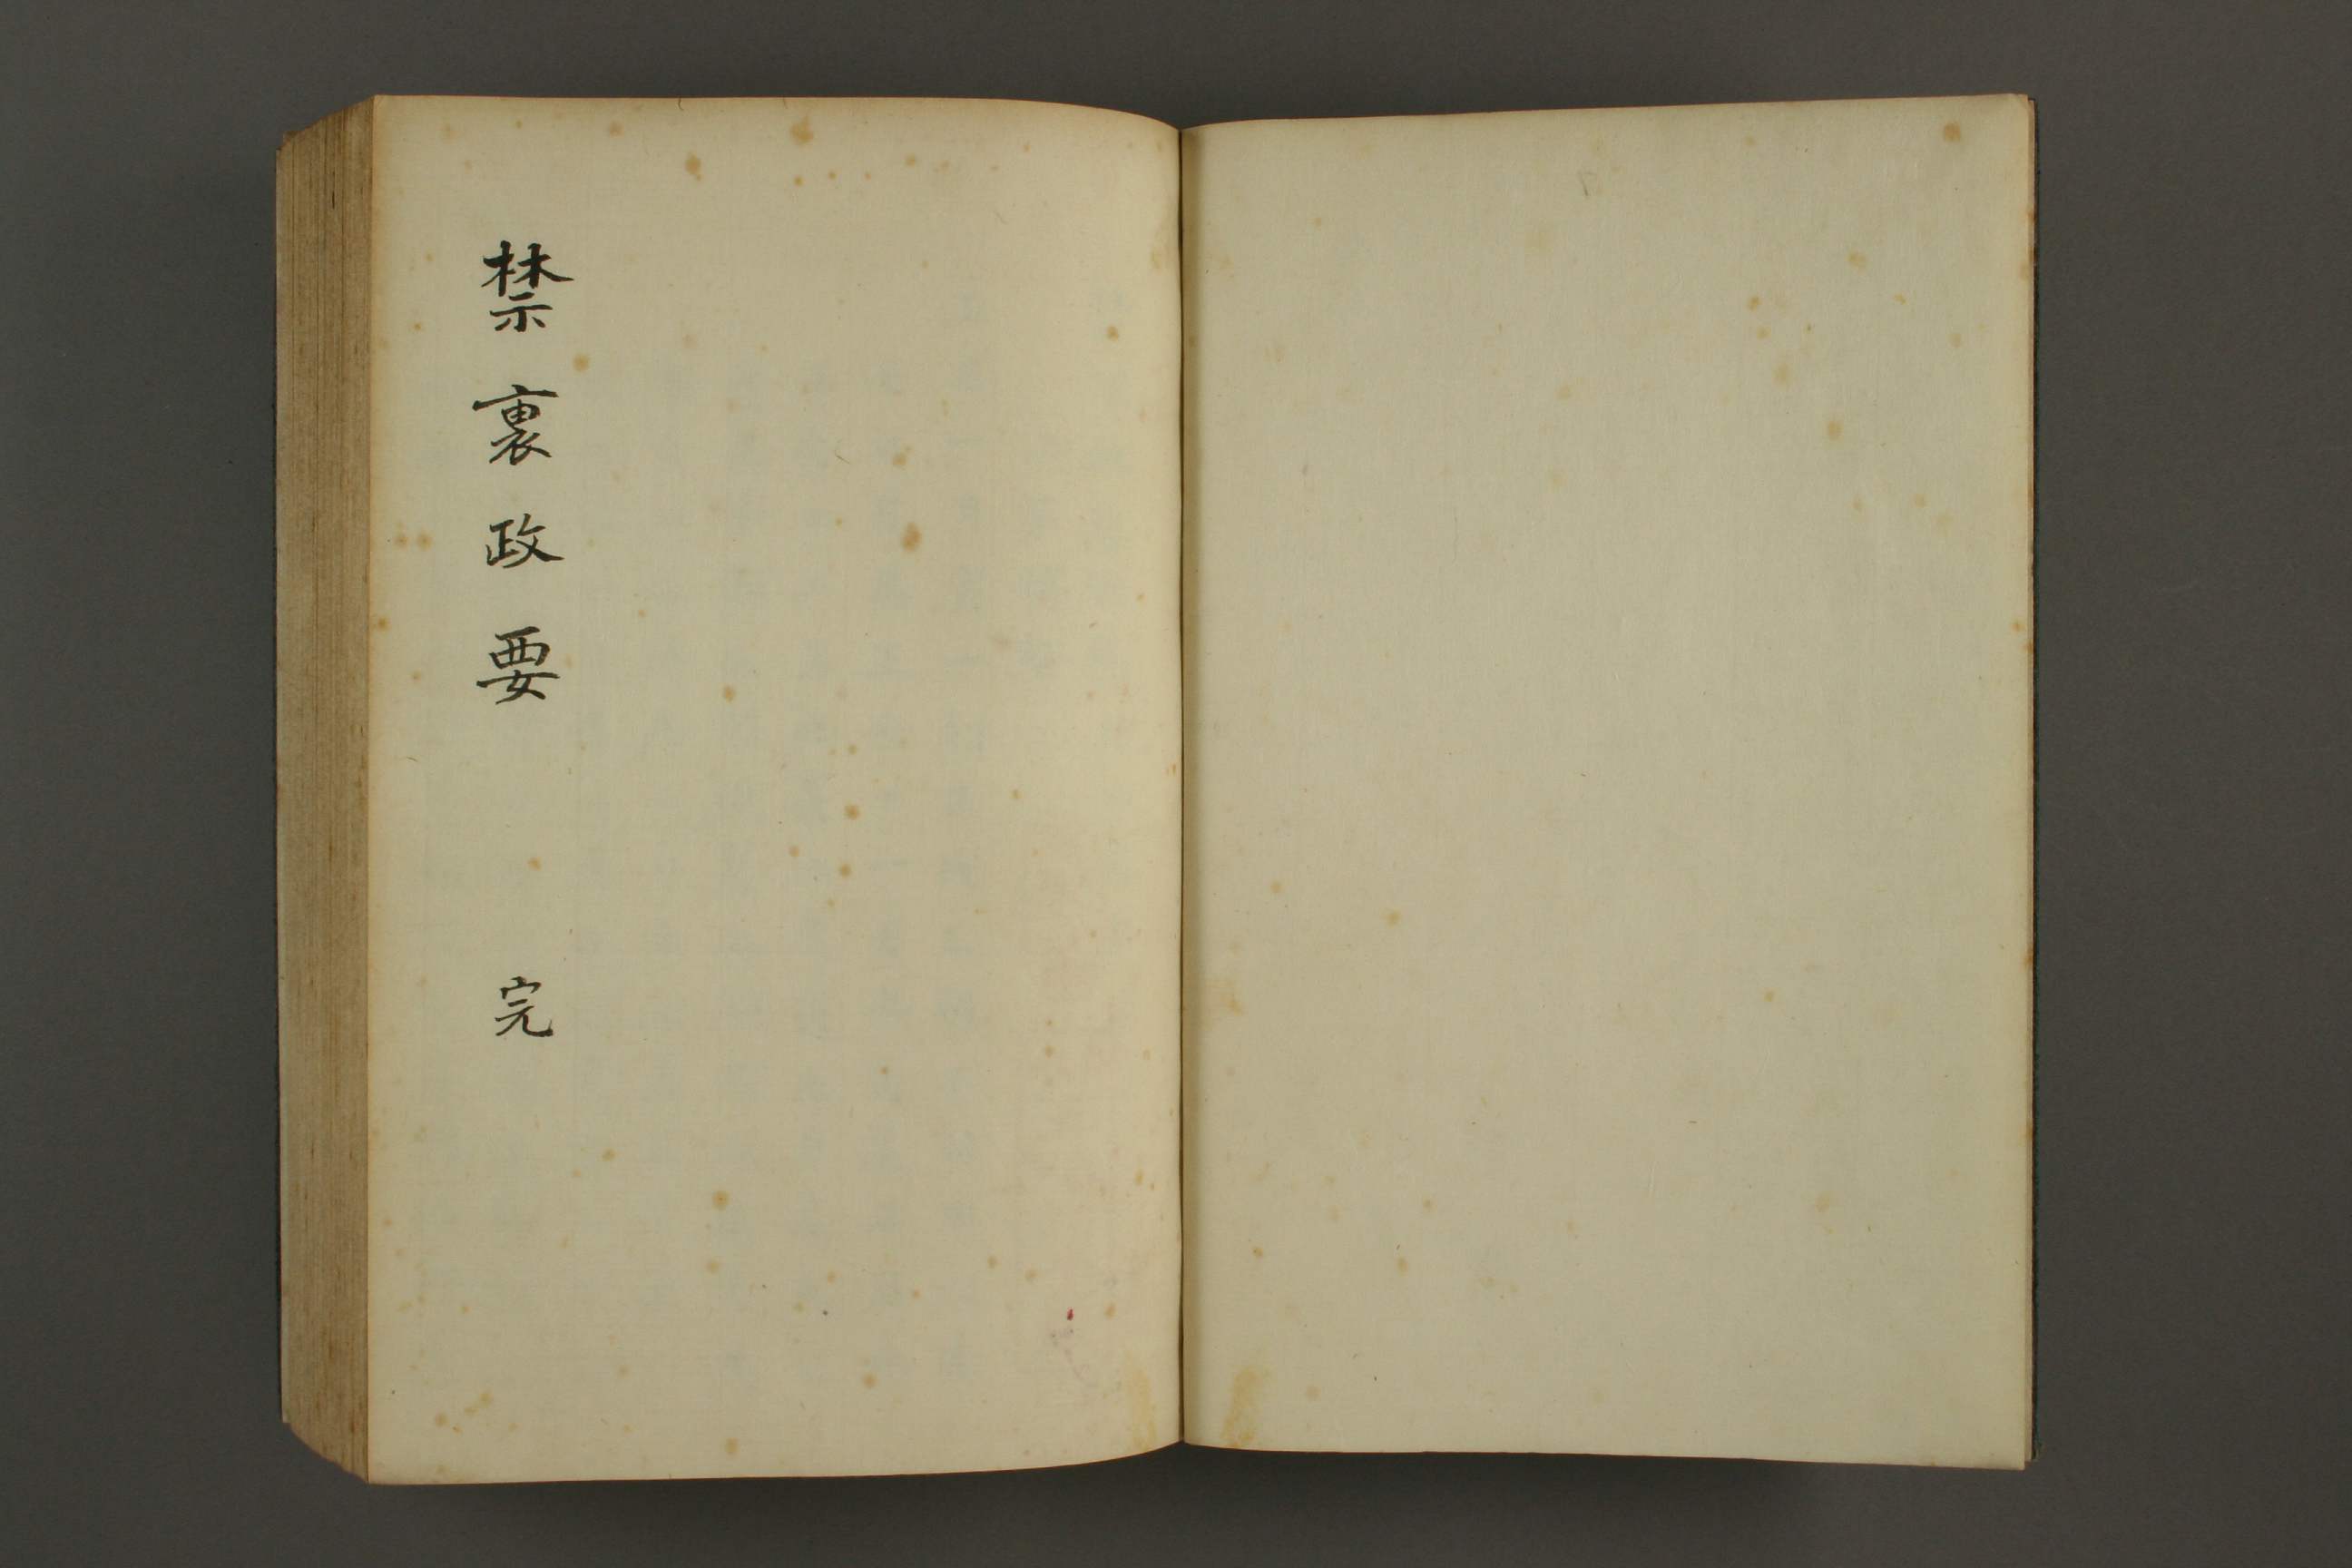 禁裏政要 完